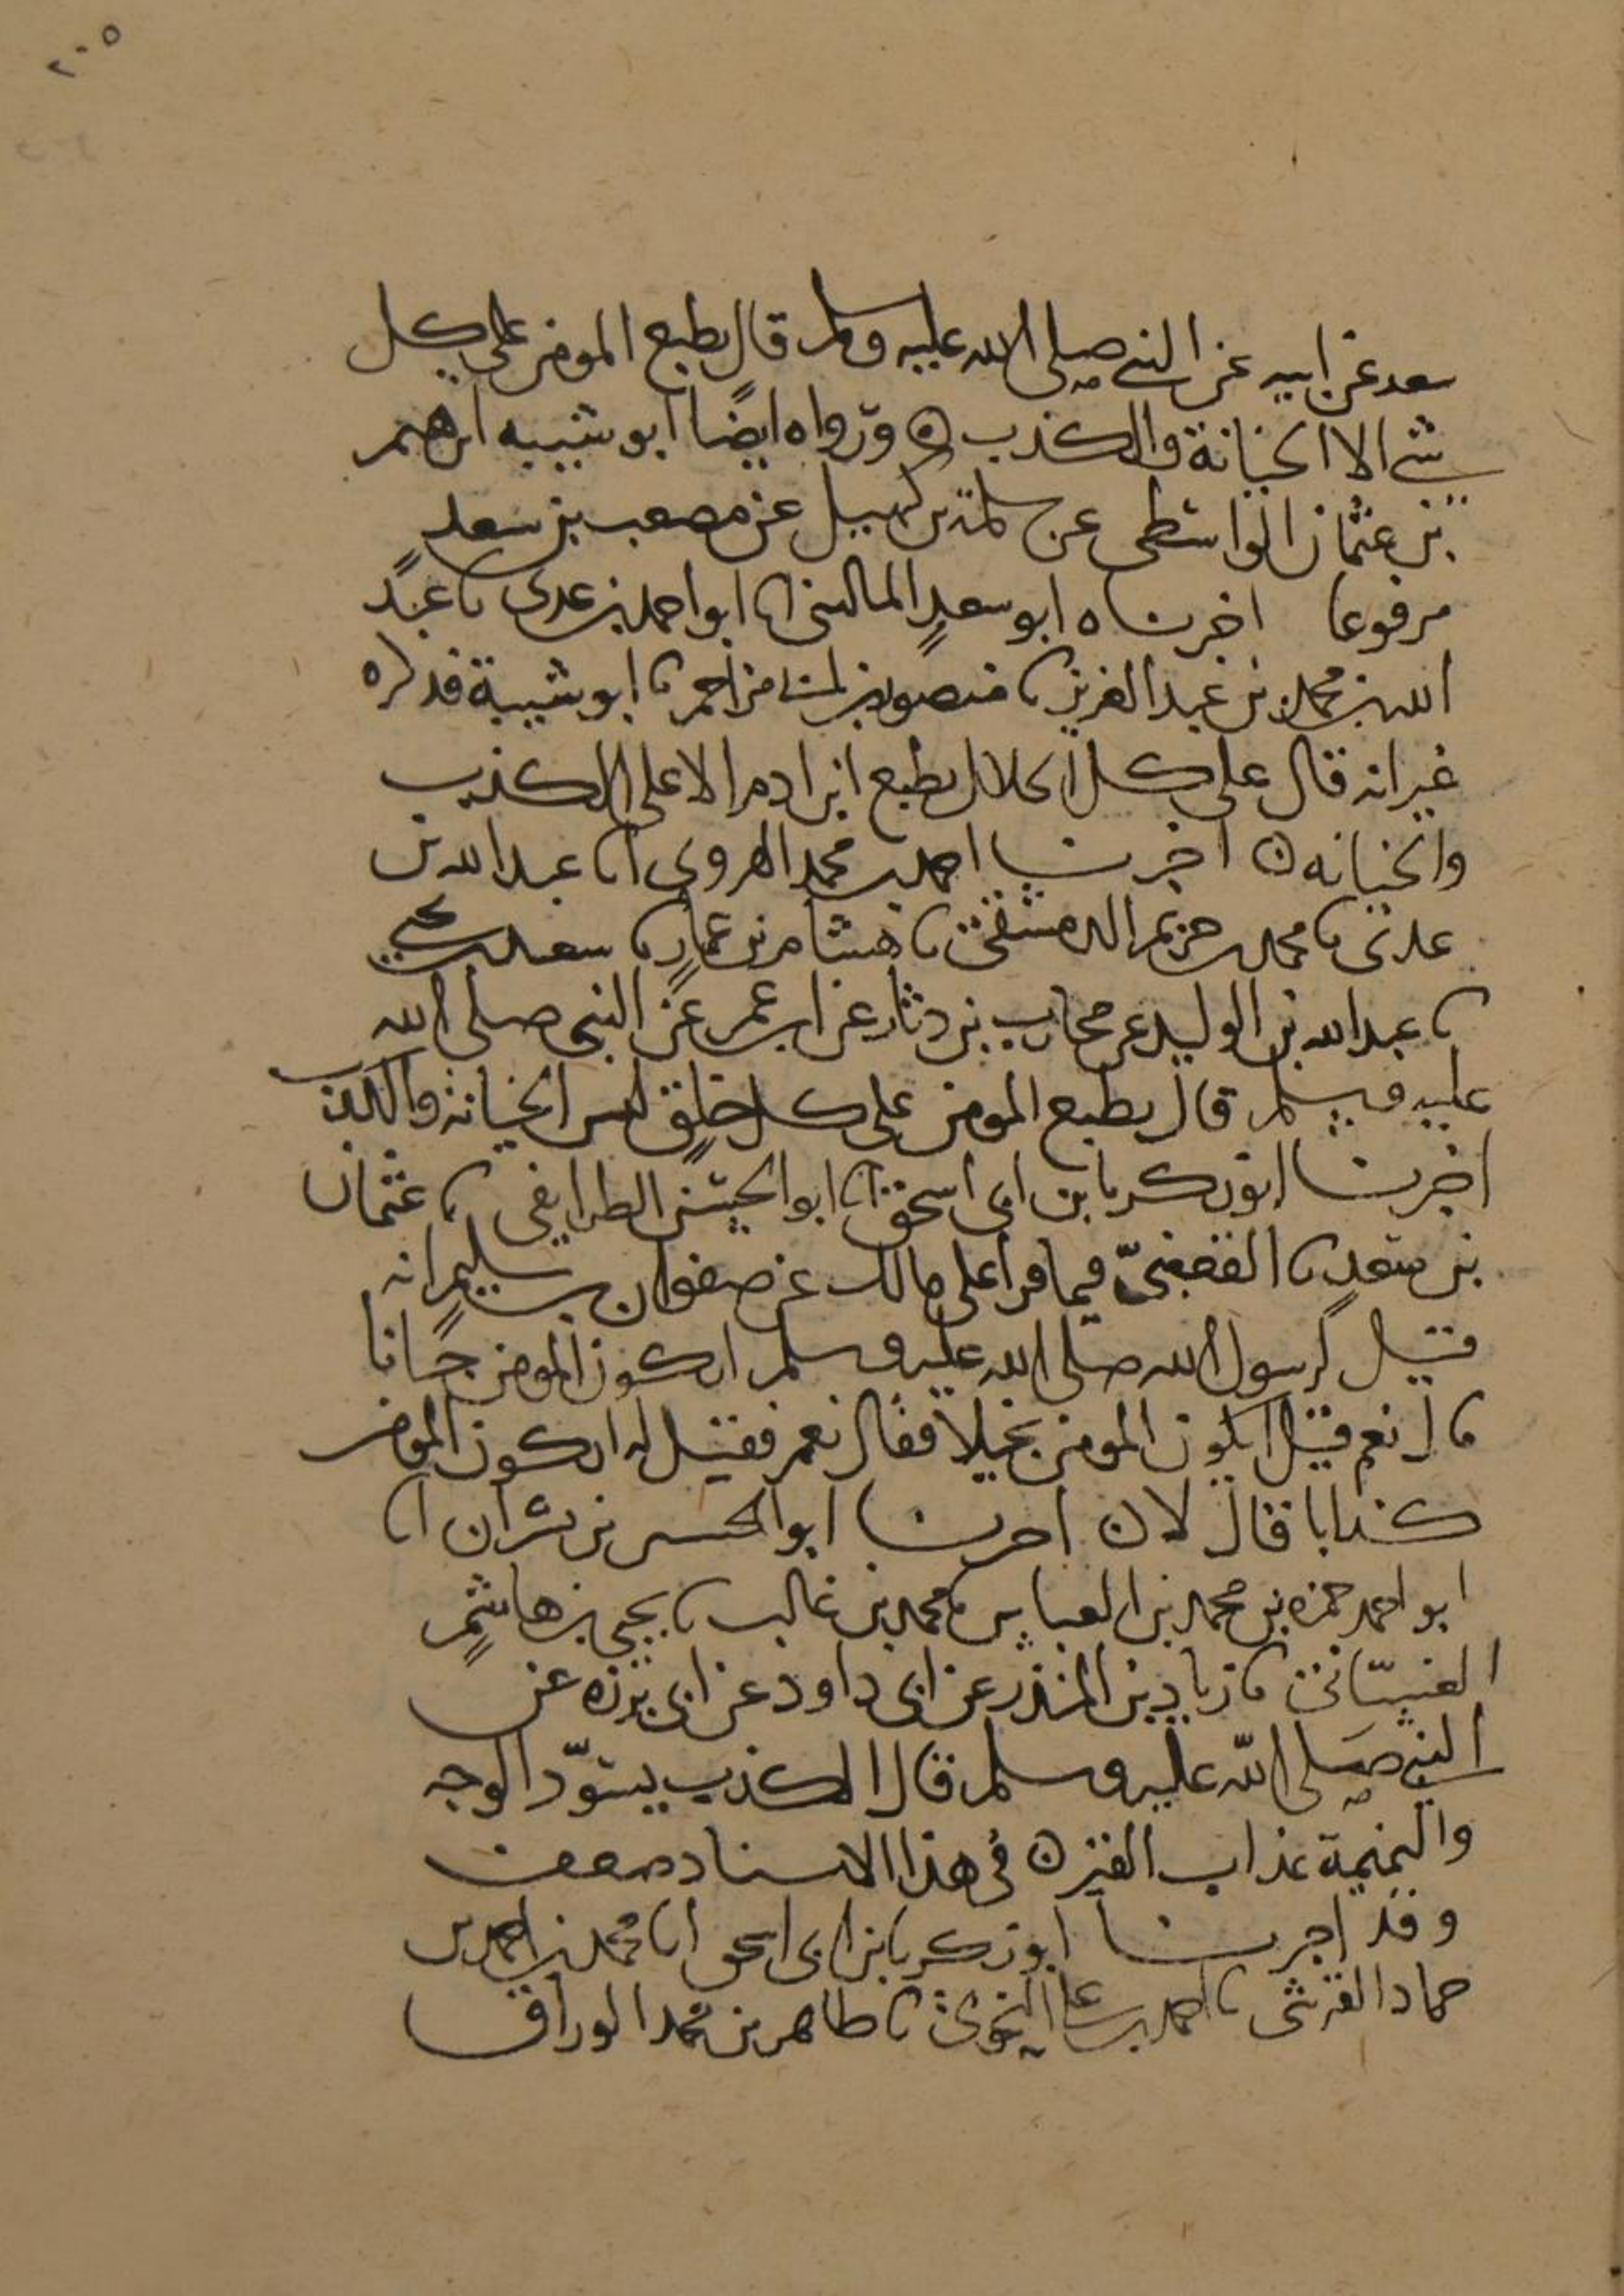 ٢٠٥
سعد عن ابيه عن النبي صلى الله عليه وسلم قال يطبع المومن على كل
شي الا الخيانة والكذب ه ورواه ايضًا ابو شيبه ابرهيم
بن عثمان الواسطي عن سلمة بن كهيل عن مصعب بن سعد
مرفوعا اخبرناه ابو سعدٍ الماليني انا ابو احمد بن عدي نا عبد
الله بن محمد بن عبد العزيز نا منصور بن ابي مزاحم نا ابو شيبة فذكره
غير انه قال على كل الخلال يطبع ابن ادم الا على الكذب
والخيانه ه اخبرنا احمد بن محمد الهروي انا عبد الله بن
عدي نا محمد بن خزيم الدمشقي نا هشام بن عمارٍ نا سعد بن يحيى
نا عبد الله بن الوليد عن محارب بن دثار عن ابن عمر عن النبي صلى الله
عليه وسلم قال يطبع المومن على كل خلقٍ ليس الخيانة والكذب
اخبرنا ابو زكريا بن ابي اسحق انا ابو الحسن الطرايفي نا عثمان
بن سعدٍ نا القعنبيّ فيما قرأ على مالك عن صفوان بن سليمٍ انه
قيل لرسول الله صلى الله عليه وسلم ايكون المومن جبانا
قال نعم قيل ايكون المومن بخيلا فقال نعم فقيل له ايكون المومن
كذابا قال لا ه اخبرنا ابو الحسين بن بشران انا
ابو احمد حمزه بن محمد بن العباس نا محمد بن غالب نا يحيى بن هاشمٍ
الغسّاني نا زياد بن المنذر عن ابي داود عن ابي برزه عن
النبي صلى الله عليه وسلم قال الكذب يسوّد الوجه
والنميمة عذاب القبر ه في هذا الاسناد ضعف
وقد اخبرنا ابو زكريا بن ابي اسحق انا محمد بن احمد بن
حماد القرشي نا احمد بن علي النحوي نا طاهر بن محمد الوراق